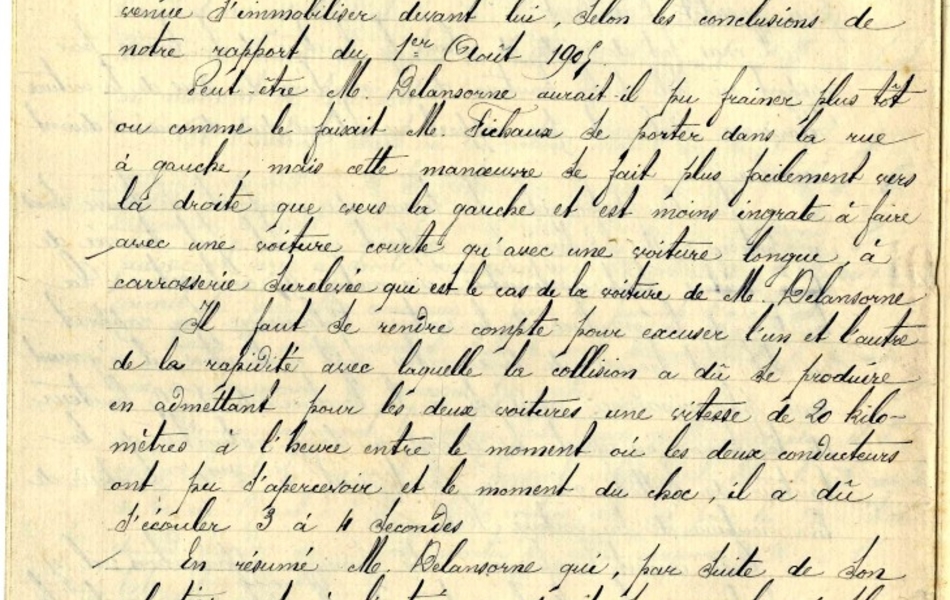 venue s'immobiliser devant lui, selon les conclusions de
notre rapport du 1er Août 190
Peut-être M. Delansorne aurait-il pu frainer plus tôt
ou comme le faisait M. Fichaux se porter dans la rue
à gauche, mais cette manœuvre se fait plus facilement vers
la droite que vers la gauche et est moins ingrate à faire
avec une voiture courte qu'avec une voiture longue, à
carrosserie surelevée qui est le cas de la voiture de M. Delansorne
Il faut se rendre compte pour excuser l'un et l'autre
de la rapidité avec laquelle la collision a dû se produire
en admettant pour les deux voitures une vitesse de 20 kilo-
mètres à l'heure entre le moment où les deux conducteurs
ont pu s'apercevoir et le moment du choc, il a dû
s'écouler 3 à 4 secondes
En résumé M. Delansorne qui, par suite de son